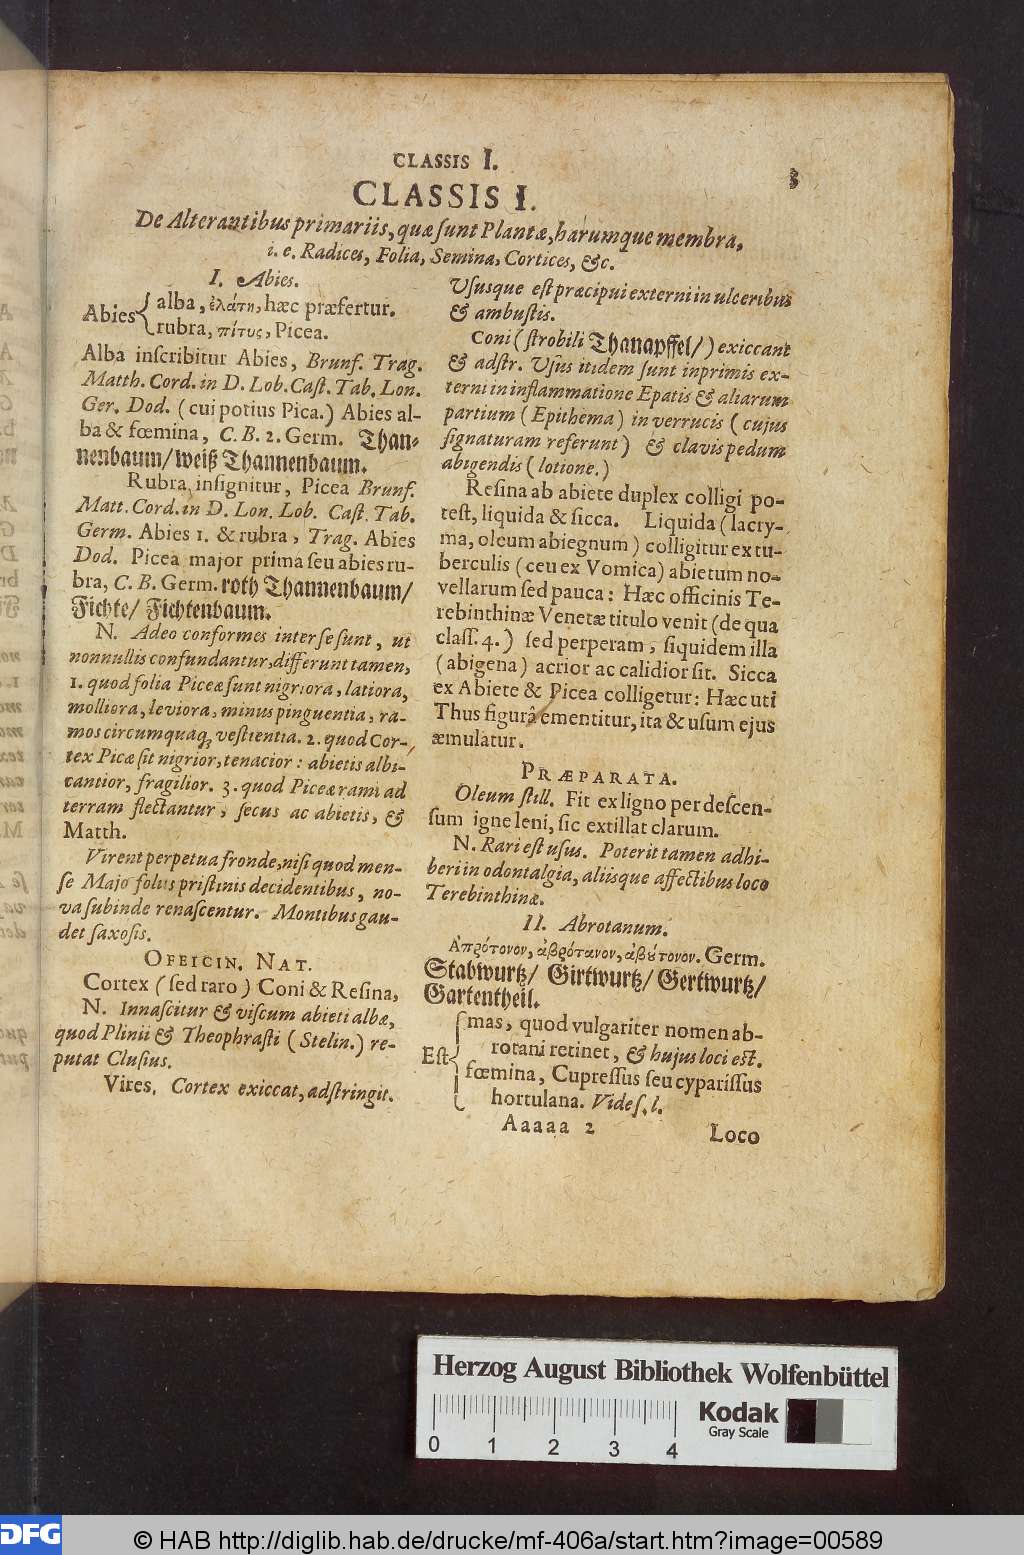 CLASSIS I.
3
CLASSIS I.
De Alterantibus primariis, quæ sunt Plantæ, harumque membra,
i. e. Radices, Folia, Semina, Cortices, &c.
I. Abies.
Abies { alba, ἐλάτη, hæc præfertur.
rubra, πίτυς, Picea.
Alba inscribitur Abies, Brunf. Trag.
Matth. Cord. in D. Lob. Cast. Tab. Lon.
Ger. Dod. (cui potius Pica.) Abies al-
ba & fœmina, C. B. 2. Germ. Than-
nenbaum/ weiß Thannenbaum.
Rubra insignitur, Picea Brunf.
Matt. Cord. in D. Lon. Lob. Cast. Tab.
Germ. Abies 1. & rubra, Trag. Abies
Dod. Picea major prima seu abies ru-
bra, C. B. Germ. roth Thannenbaum/
Fichte/ Fichtenbaum.
N. Adeo conformes inter se sunt, ut
nonnullis confundantur, differunt tamen,
1. quod folia Piceæ sunt nigriora, latiora,
molliora, leviora, minus pinguentia, ra-
mos circumquaq; vestientia. 2. quod Cor-
tex Picæ sit nigrior, tenacior: abietis albi-
cantior, fragilior. 3. quod Piceæ rami ad
terram flectantur, secus ac abietis, &
Matth.
Virent perpetua fronde, nisi quod men-
se Majo folus pristinis decidentibus, no-
va subinde renascentur. Montibus gau-
det saxosis.
OFFICIN. NAT.
Cortex (sed raro) Coni & Resina,
N. Innascitur & viscum abieti albæ,
quod Plinii & Theophrasti (Stelin.) re-
putat Clusius.
Vires. Cortex exiccat, adstringit.
Ususque est præcipui externi in ulceribus
& ambustis.
Coni (strobili Thanapffel/) exiccant
& adstr. Usus itidem sunt inprimis ex-
terni in inflammatione Epatis & aliarum
partium (Epithema) in verrucis (cujus
signaturam referunt) & clavis pedum
abigendis (lotione.)
Resina ab abiete duplex colligi po-
test, liquida & sicca. Liquida (lacry-
ma, oleum abiegnum) colligitur ex tu-
berculis (ceu ex Vomica) abietum no-
vellarum sed pauca: Hæc officinis Te-
rebinthinæ Venetæ titulo venit (de qua
class. 4.) sed perperam, siquidem illa
(abigena) acrior ac calidior sit. Sicca
ex Abiete & Picea colligetur: Hæc uti
Thus figurâ ementitur, ita & usum ejus
æmulatur.
PRÆPARATA.
Oleum still. Fit ex ligno per descen-
sum igne leni, sic extillat clarum.
N. Rari est usus. Poterit tamen adhi-
beri in odontalgia, aliisque affectibus loco
Terebinthinæ.
II. Abrotanum.
Ἀπρότονον, ἀβρότανον, ἀβȣ́τονον. Germ.
Stabwurtz/ Girtwurtz/ Gertwurtz/
Gartentheil.
Est { mas, quod vulgariter nomen ab-
rotani retinet, & hujus loci est.
fœmina, Cupressus seu cyparissus
hortulana. Vide s. l.
Aaaaa 2
Loco
Herzog August Bibliothek Wolfenbüttel
0 1 2 3 4
Kodak
Gray Scale
DFG
© HAB http://diglib.hab.de/drucke/mf-406a/start.htm?image=00589